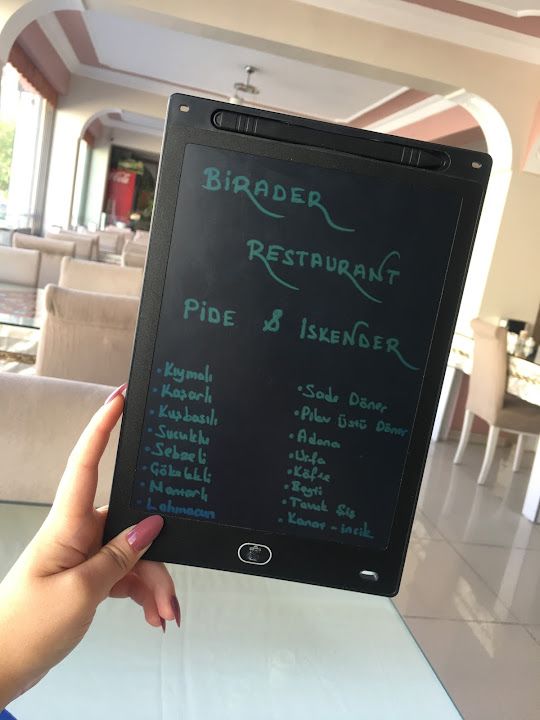 BİRADER
RESTAURANT
PİDE & ISKENDER
• Kıymalı
• Kaşarlı
• Kuşbaşılı
• Sucuklu
• Sebzeli
• Mantarlı
• Lahmacun
• Sade Döner
• Pilav Üstü Döner
• Adana
• Urfa
• Köfte
• Beyti
• Tavuk Şiş
• Kanat - incik